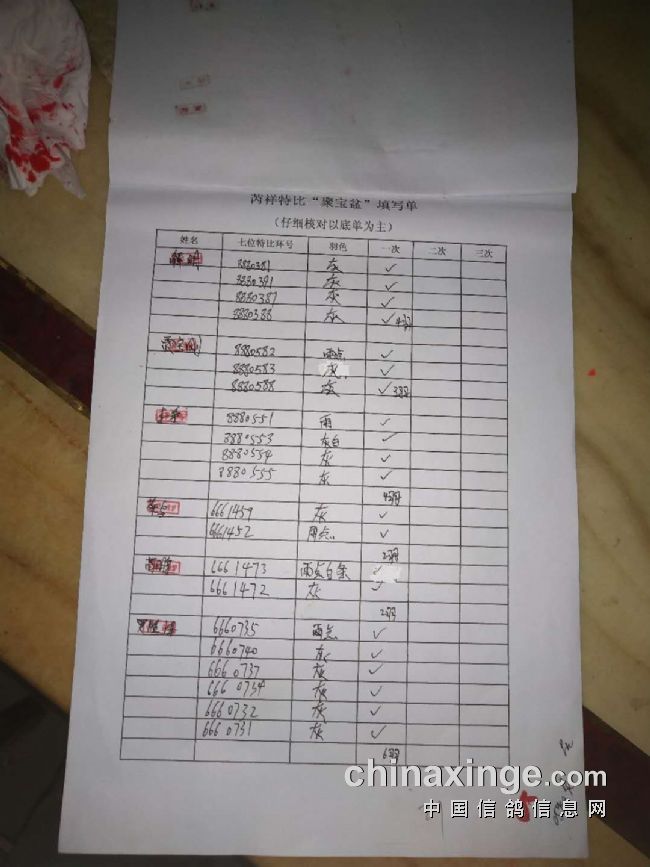 芮祥特比“聚宝盆”填写单
(仔细核对以底单为主)
姓名 七位特比环号 羽色 一次 二次 三次
8880381 灰 ✓
8880391 灰 ✓
8880387 灰 ✓
8880388 灰 ✓ 4羽
8880582 雨点 ✓
8880583 灰 ✓
8880588 灰 ✓ 3羽
8880551 雨 ✓
8880553 灰白 ✓
8880554 灰 ✓
8880555 灰 ✓
4羽
6661459 灰 ✓
6661452 雨点 ✓
2羽
6661473 雨点白条 ✓
6661472 灰 ✓
2羽
6660735 雨点 ✓
6660740 灰 ✓
6660737 灰 ✓
6660734 灰 ✓
6660732 灰 ✓
6660731 灰 ✓
6羽
chinaxinge.com
中国信鸽信息网